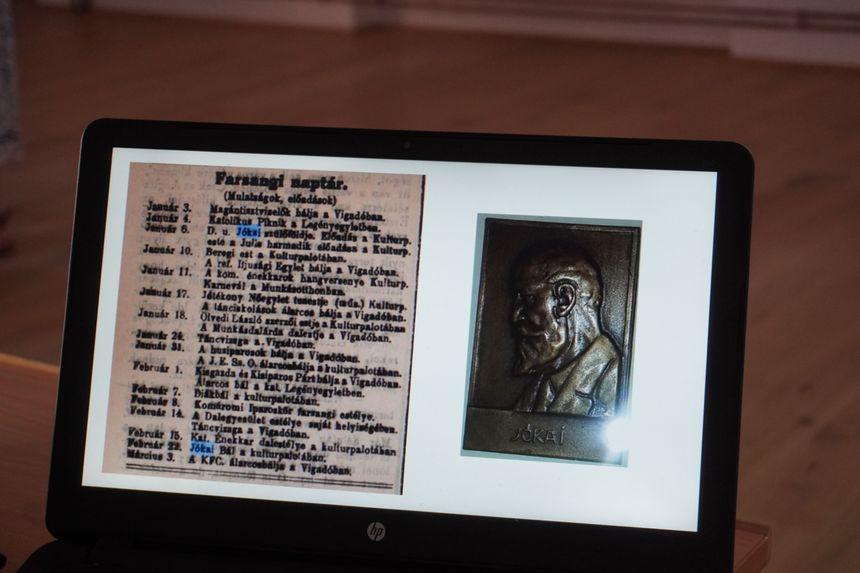 Farsangi naptár.
(Mulatságok, előadások)
Január 3. Magántisztviselők bálja a Vigadóban.
Január 4. Katolikus Piknik a Legényegyletben.
Január 6. D. u. Jókai szülőföldje. Előadás a Kulturp.
este a Julis harmadik előadása a Kulturp.
Január 10. Beregi est a Kulturpalotában.
A ref. Ifjusági Egylet bálja a Vigadóban.
Január 11. A kom. énekkarok hangversenye Kulturp.
Karnevál a Munkásotthonban.
Január 17. Jótékony Nőegylet teaestje (műs.) Kulturp.
A tánciskolások álarcos bálja a Vigadóban.
Január 18. Ölvedi László szerzői estje a Kulturpalotában
A Munkásdalárda dalestje a Vigadóban.
Január 24. Táncvizsga a Vigadóban.
Január 31. A husiparosok bálja a Vigadóban.
A J. E. Sz. O. álarcosbálja a kulturpalotában.
Február 1. Kisgazda és Kisiparos Párt bálja a Vigadóban.
Álarcos bál a kat. Legényegyletben.
Február 7. Diákbál a kulturpalotában.
Február 8. Komáromi Iparoskör farsangi estélye.
Február 14. A Dalegyesület estélye saját helyiségében.
Táncvizsga a Vigadóban.
Február 15. Kat. Énekkar dalestélye a kulturpalotában
Február 22. Jókai Bál a kulturpalotában.
Március 3. A KFC. álarcosbálja a Vigadóban.
JÓKAI
hp